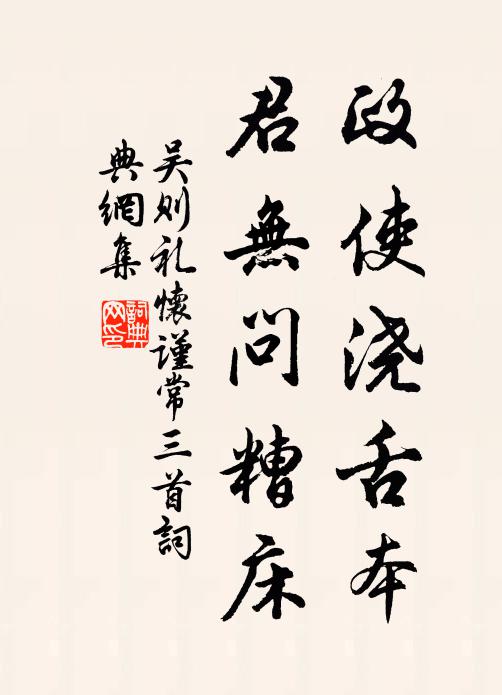 政使浇舌本
君無問糟床
吴则礼懷謹常三首詞
典網集
詞典網印